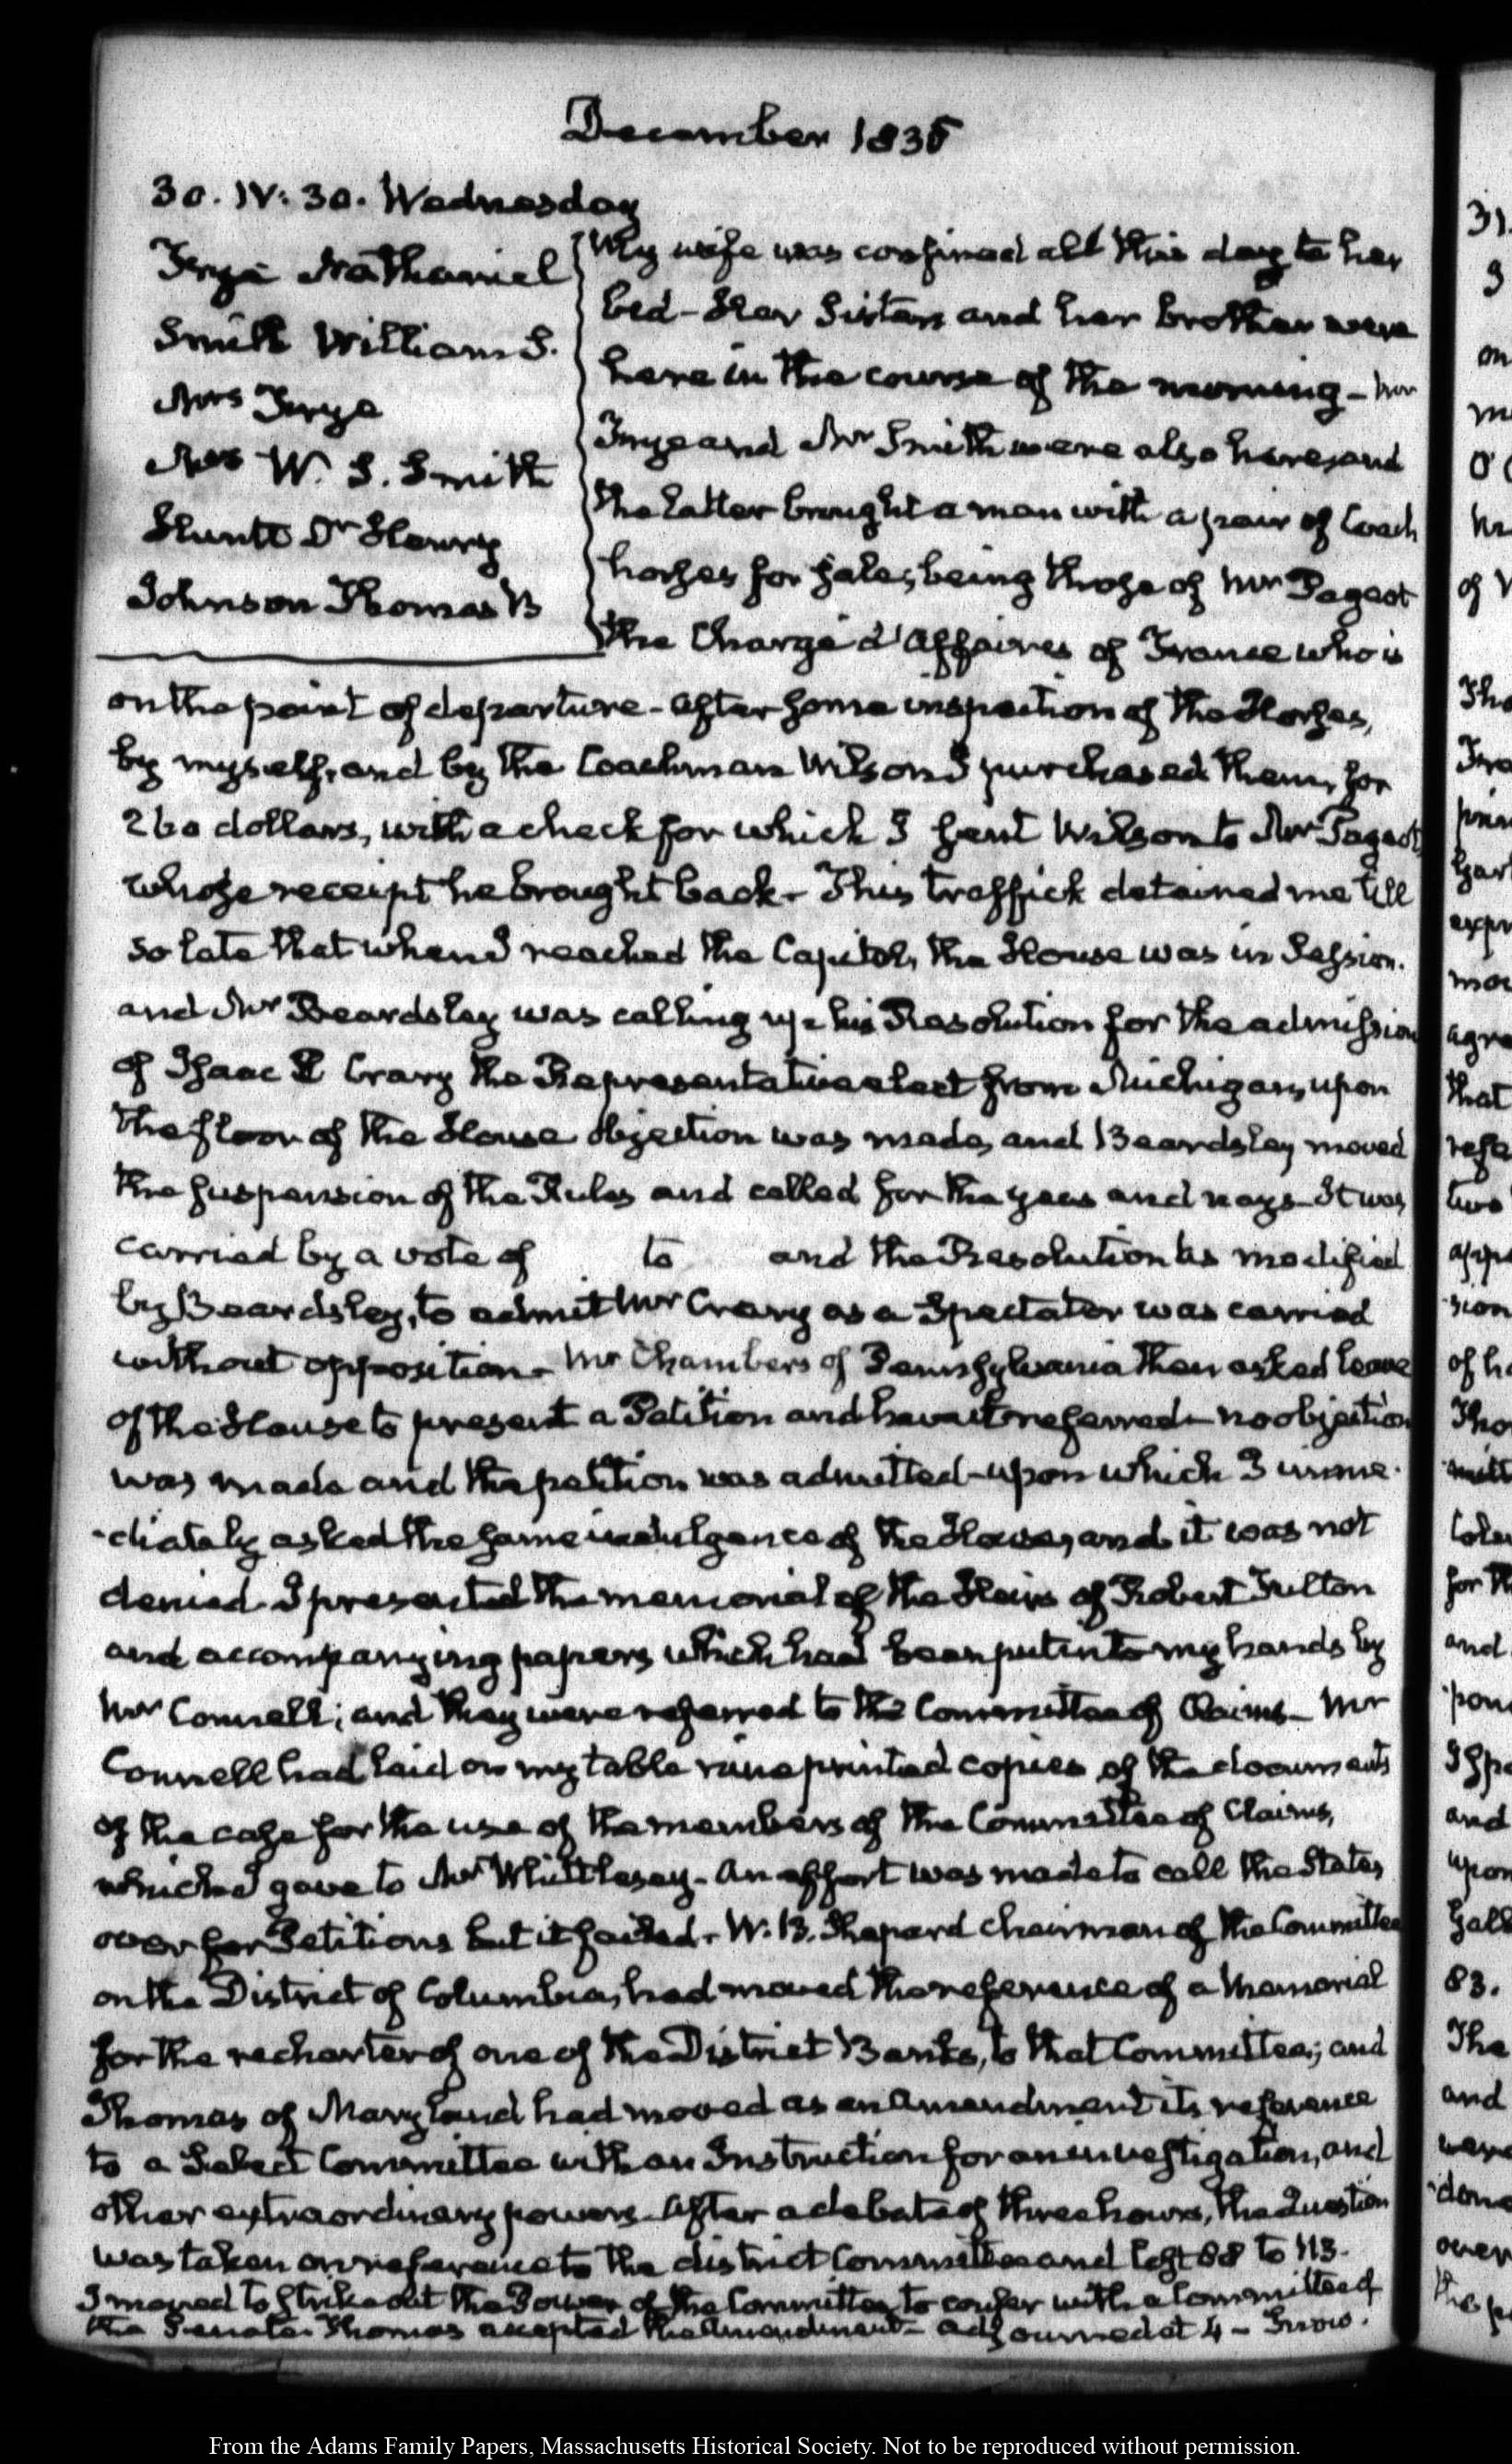 December 1835
30. IV: 30. Wednesday
Frye Nathaniel
Smith William S.
Mrs Frye
Mrs W. S. Smith
Hunt Dr Henry
Johnson Thomas B
My wife was confined all this day to her
bed - Her Sisters and her brother were
here in the course of the morning - Mr
Frye and Mr Smith were also here, and
the latter brought a man with a pair of Coach
horses for sale, being those of Mr Pageot
the Chargé d'Affaires of France who is
on the point of departure - After some inspection of the Horses,
by myself, and by the Coachman Wilson I purchased them, for
260 dollars, with a check for which I sent Wilson to Mr Pageot
whose receipt he brought back - This traffick detained me till
so late that when I reached the Capitol, the House was in Session.
and Mr Beardsley was calling up his Resolution for the admission
of Isaac E Crary the Representative elect from Michigan, upon
the floor of the House objection was made, and Beardsley moved
the suspension of the Rules and called for the yeas and nays - It was
carried by a vote of to and the Resolution as modified
by Beardsley, to admit Mr Crary as a Spectator was carried
without opposition - Mr Chambers of Pennsylvania then asked leave
of the House to present a Petition and have it referred - no objection
was made and the petition was admitted - upon which I imme-
-diately asked the same indulgence of the House, and it was not
denied. I presented the memorial of the Heirs of Robert Fulton
and accompanying papers which had been put into my hands by
Mr Connell; and they were referred to the Committee of Claims - Mr
Connell had laid on my table nine printed copies of the documents
of the case for the use of the members of the Committee of Claims,
which I gave to Mr Whittlesey - An effort was made to call the States
over for Petitions but it failed - W. B. Shepard chairman of the Committee
on the District of Columbia, had moved the reference of a Memorial
for the recharter of one of the District Banks, to that Committee; and
Thomas of Maryland had moved as an Amendment its reference
to a Select Committee with an Instruction for an investigation, and
other extraordinary powers - After a debate of three hours, the Question
was taken on reference to the district Committee and lost 88 to 113.
I moved to strike out the Power of the Committee to confer with a Committee of
the Senate. Thomas accepted the Amendment - Adjourned at 4 - Snow.
From the Adams Family Papers, Massachusetts Historical Society. Not to be reproduced without permission.